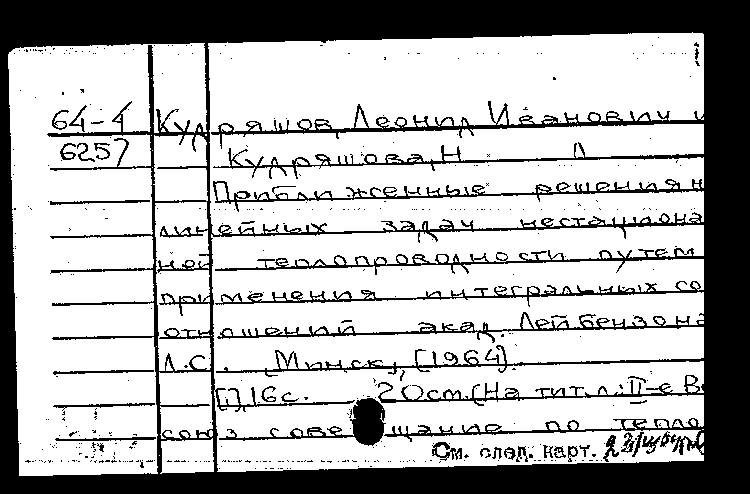 64-4 Кудряшов, Леонид Иванович и
6257 Кудряшова, Н Л
Приближенные решения н
линейных задач нестациона
ной теплопроводности путем
применения интегральных со
отношений акад. Лейбензона
Л.С. Минск, [1964]
[1], 16 с. 20 см. [На тит. л.: II-е Вс
союз совещание по тепло
См. след. карт.